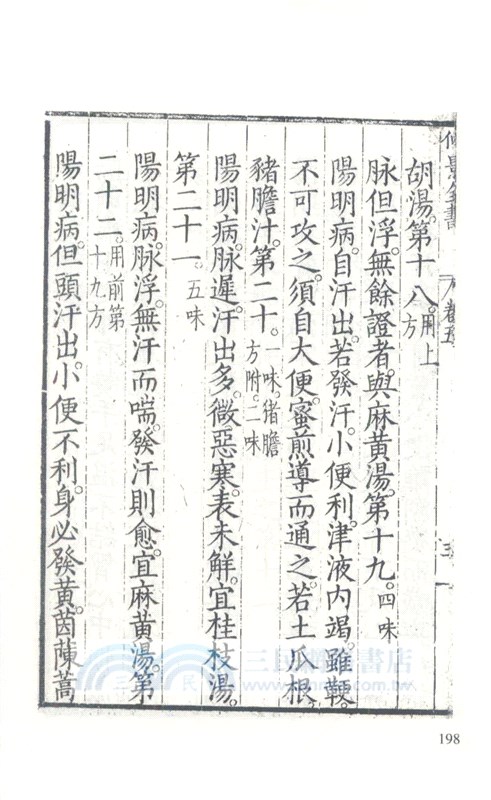 胡湯第十八。用上方
脉但浮。無餘證者。與麻黃湯。第十九。四味
陽明病。自汗出。若發汗。小便利。津液內竭。雖鞕。
不可攻之。須自大便。蜜煎導而通之。若土瓜根
豬膽汁。第二十。一味。猪膽方附。二味
陽明病。脉遲。汗出多。微惡寒。表未解。宜桂枝湯。
第二十一。五味
陽明病。脉浮。無汗而喘。發汗則愈。宜麻黃湯。第
二十二。用前第十九方
陽明病。但頭汗出。小便不利。身必發黃。茵蔯蒿
三民網路書店
198